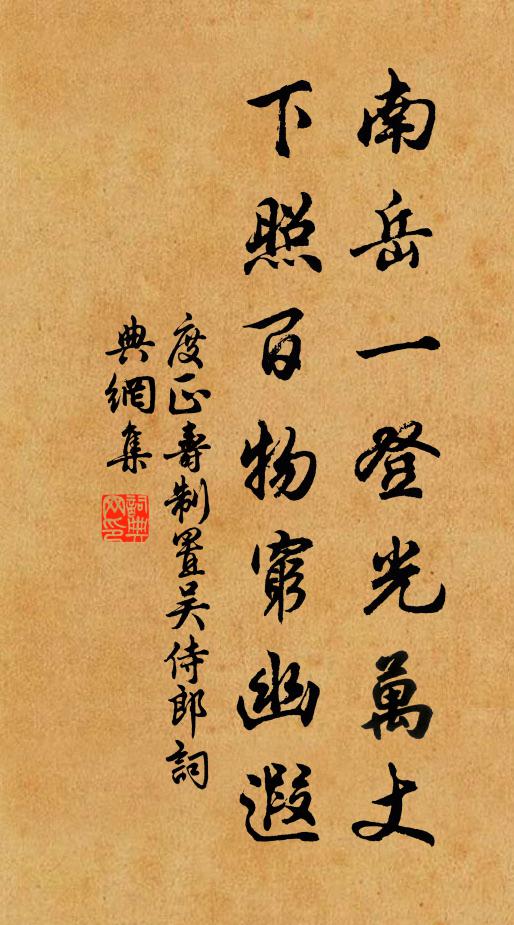 南岳一登光萬丈
下照百物窮幽遐
度正壽制置吴侍郎詞
典網集
詞典網印